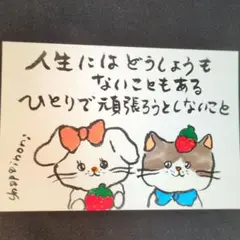 人生にはどうしようも
ないこともある
ひとりで頑張ろうとしないこと